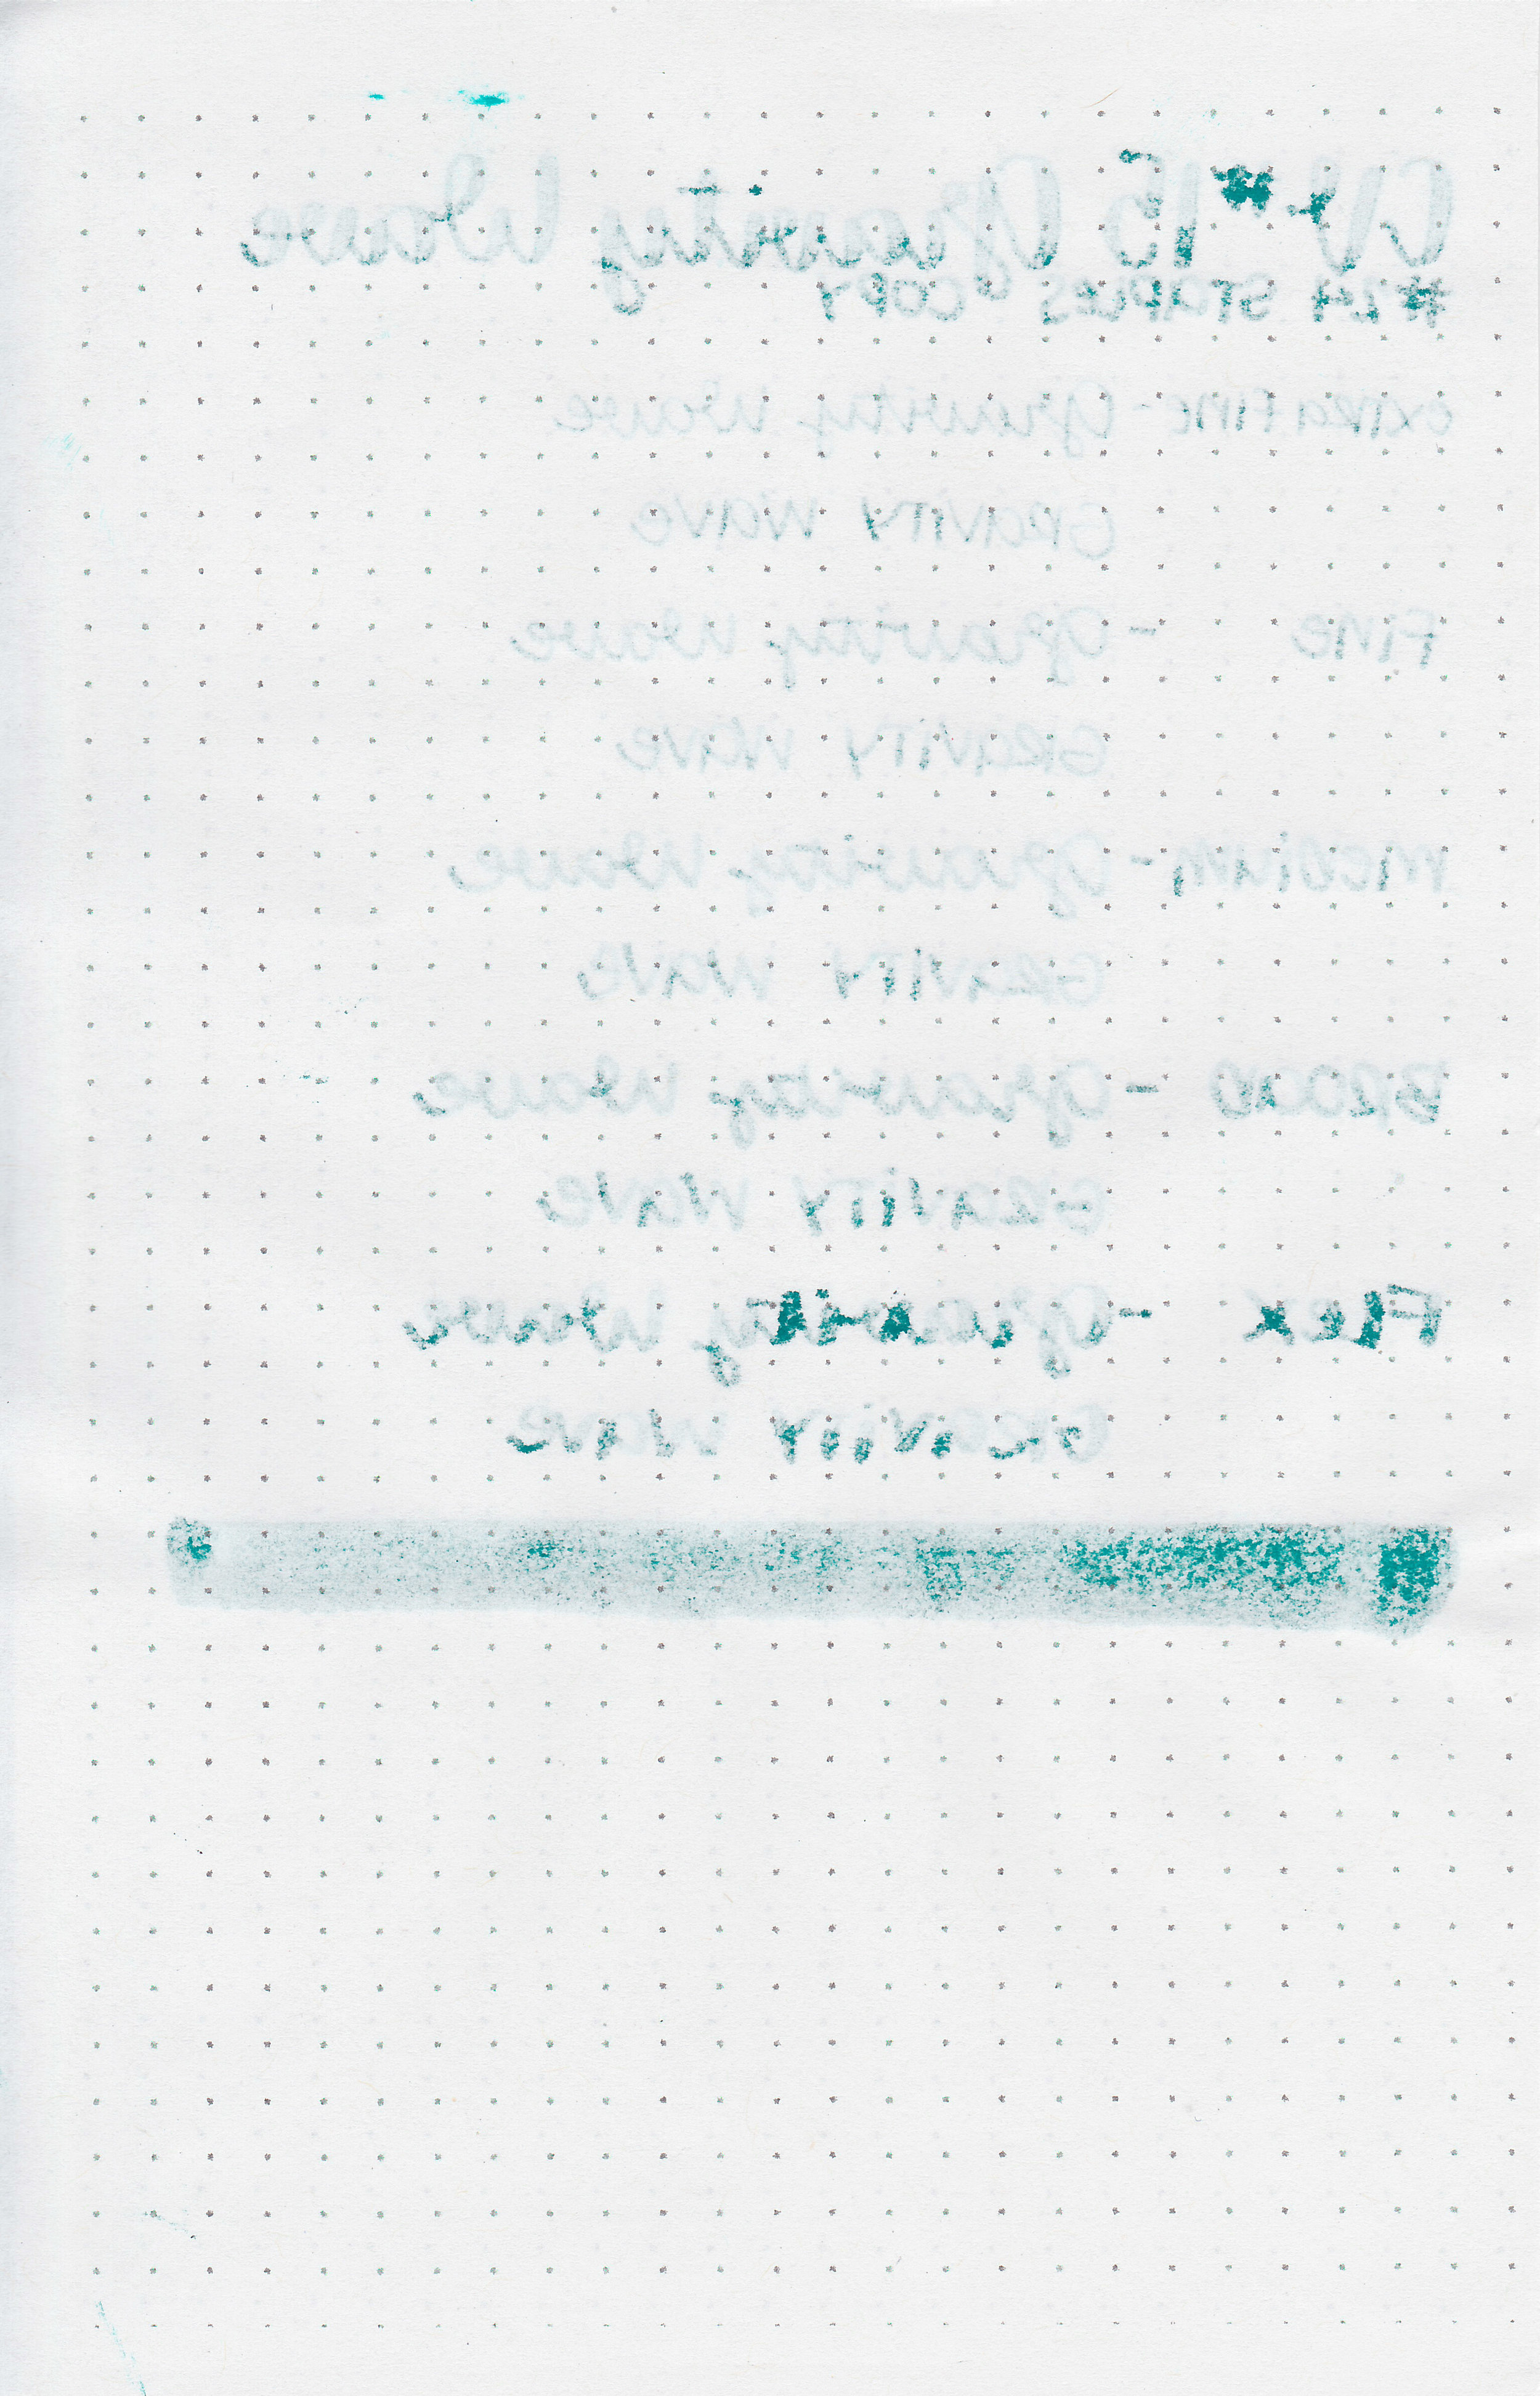 CV #15 Gravity Wave
#24 STAPLES COPY
EXTRA FINE - Gravity Wave
GRAVITY WAVE
FINE - Gravity Wave
GRAVITY WAVE
MEDIUM - Gravity Wave
GRAVITY WAVE
BROAD - Gravity Wave
GRAVITY WAVE
FLEX - Gravity Wave
GRAVITY WAVE